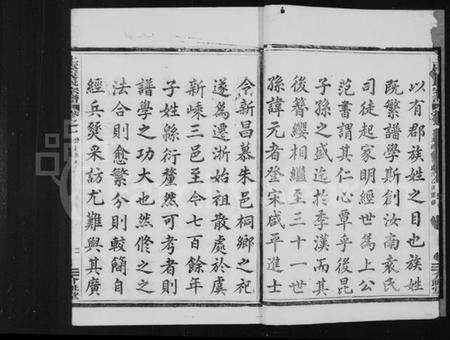 以有郡族姓之目也族姓
既繁譜學斯創汝南袁氏
司徒起家明經世為上公
范書謂其仁心覃乎後昆
子孫之盛迄於季漢而其
後簪纓相繼至三十一世
孫諱元者登宋咸平進士
令新昌慕朱邑祠鄉之祀
遂為遷浙始祖散處於虞
新嵊三邑至今七百餘年
子姓緜衍釐然可考者則
譜學之功大也然修之之
法合則愈繁分則較簡自
經兵燹采訪尤難與其廣